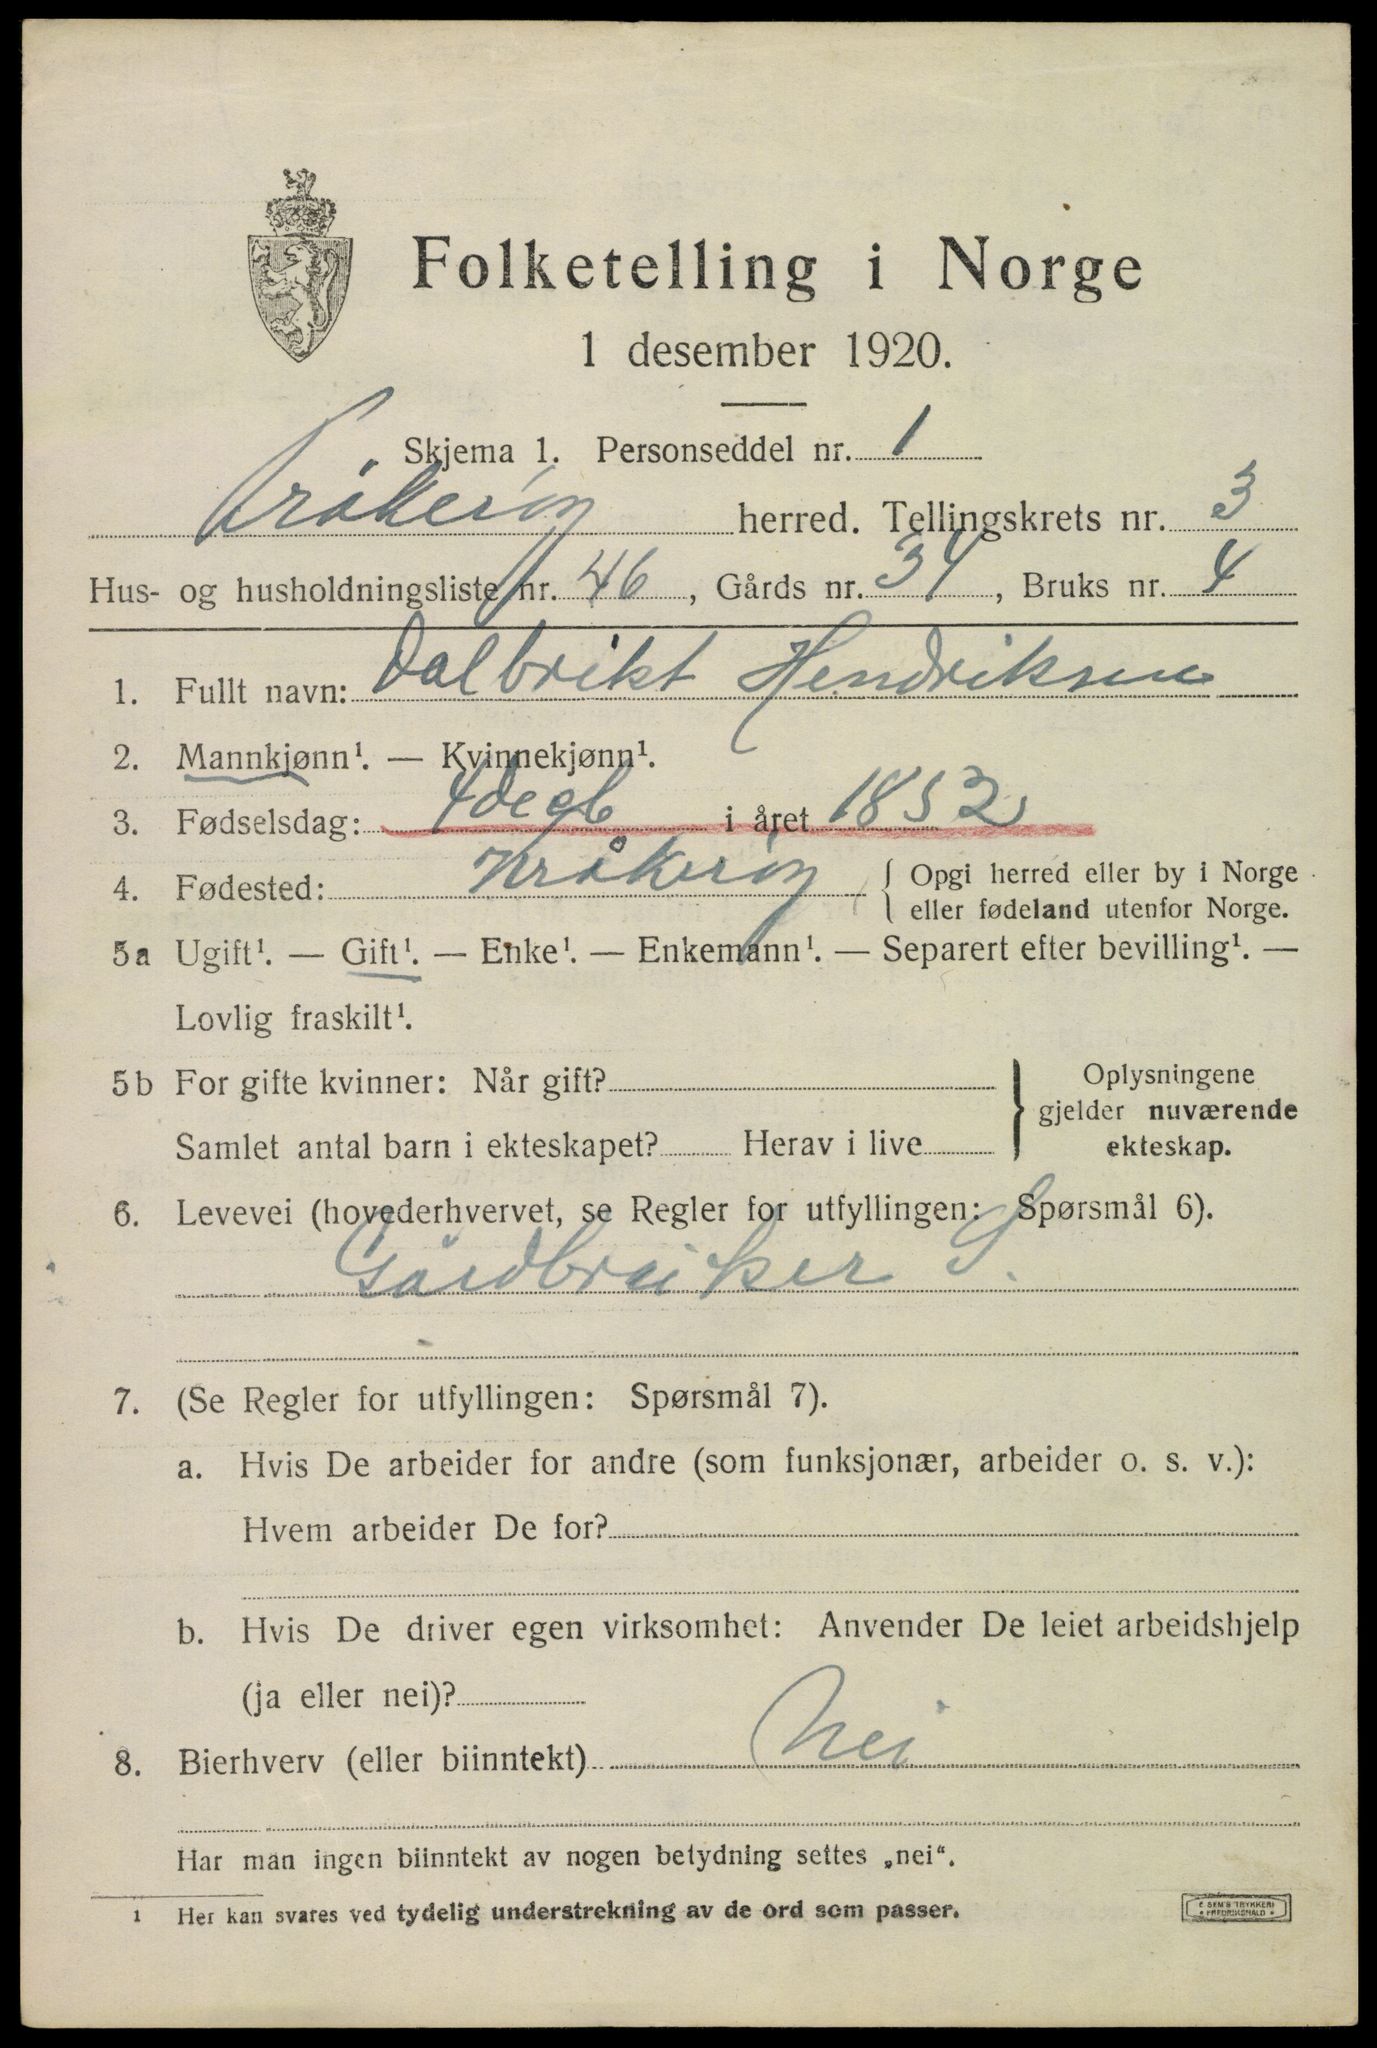 Folketelling i Norge
1 desember 1920.
Skjema 1. Personseddel nr. 1
Kråkerøy herred. Tellingskrets nr. 3
Hus- og husholdningsliste nr. 46, Gårds nr. 34, Bruks nr. 4
1. Fullt navn: Dalbrikt Hendriksen
2. Mannkjønn¹. — Kvinnekjønn¹.
3. Fødselsdag: 4 decb i året 1852
4. Fødested: Kråkerøy { Opgi herred eller by i Norge
eller fødeland utenfor Norge.
5a Ugift¹. — Gift¹. — Enke¹. — Enkemann¹. — Separert efter bevilling¹. —
Lovlig fraskilt¹.
5b For gifte kvinner: Når gift? } Oplysningene
gjelder nuværende
Samlet antal barn i ekteskapet? Herav i live ekteskap.
6. Levevei (hovederhvervet, se Regler for utfyllingen: Spørsmål 6).
Gårdbruker S.
7. (Se Regler for utfyllingen: Spørsmål 7).
a. Hvis De arbeider for andre (som funksjonær, arbeider o. s. v.):
Hvem arbeider De for?
b. Hvis De driver egen virksomhet: Anvender De leiet arbeidshjelp
(ja eller nei)?
8. Bierhverv (eller biinntekt) Nei
Har man ingen biinntekt av nogen betydning settes „nei“.
1 Her kan svares ved tydelig understrekning av de ord som passer.
E. SEM'S TRYKKERI
• FREDRIKSHALD •